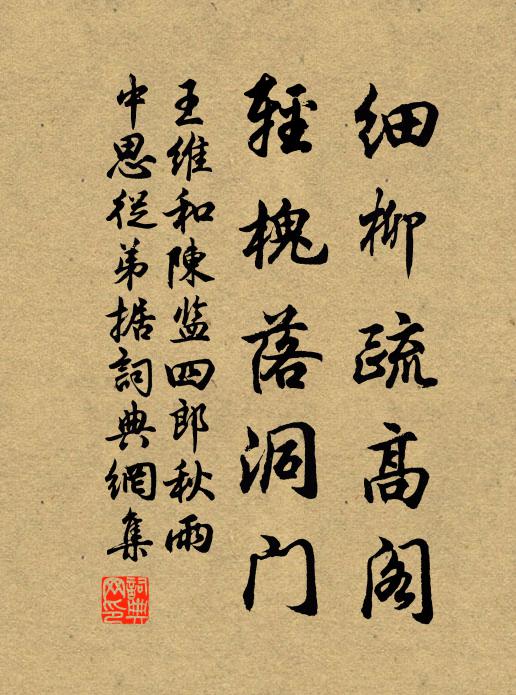 细柳疏高阁
轻槐落洞门
王維和陳监四郎秋雨
中思従弟据詞典網集
詞典
网印